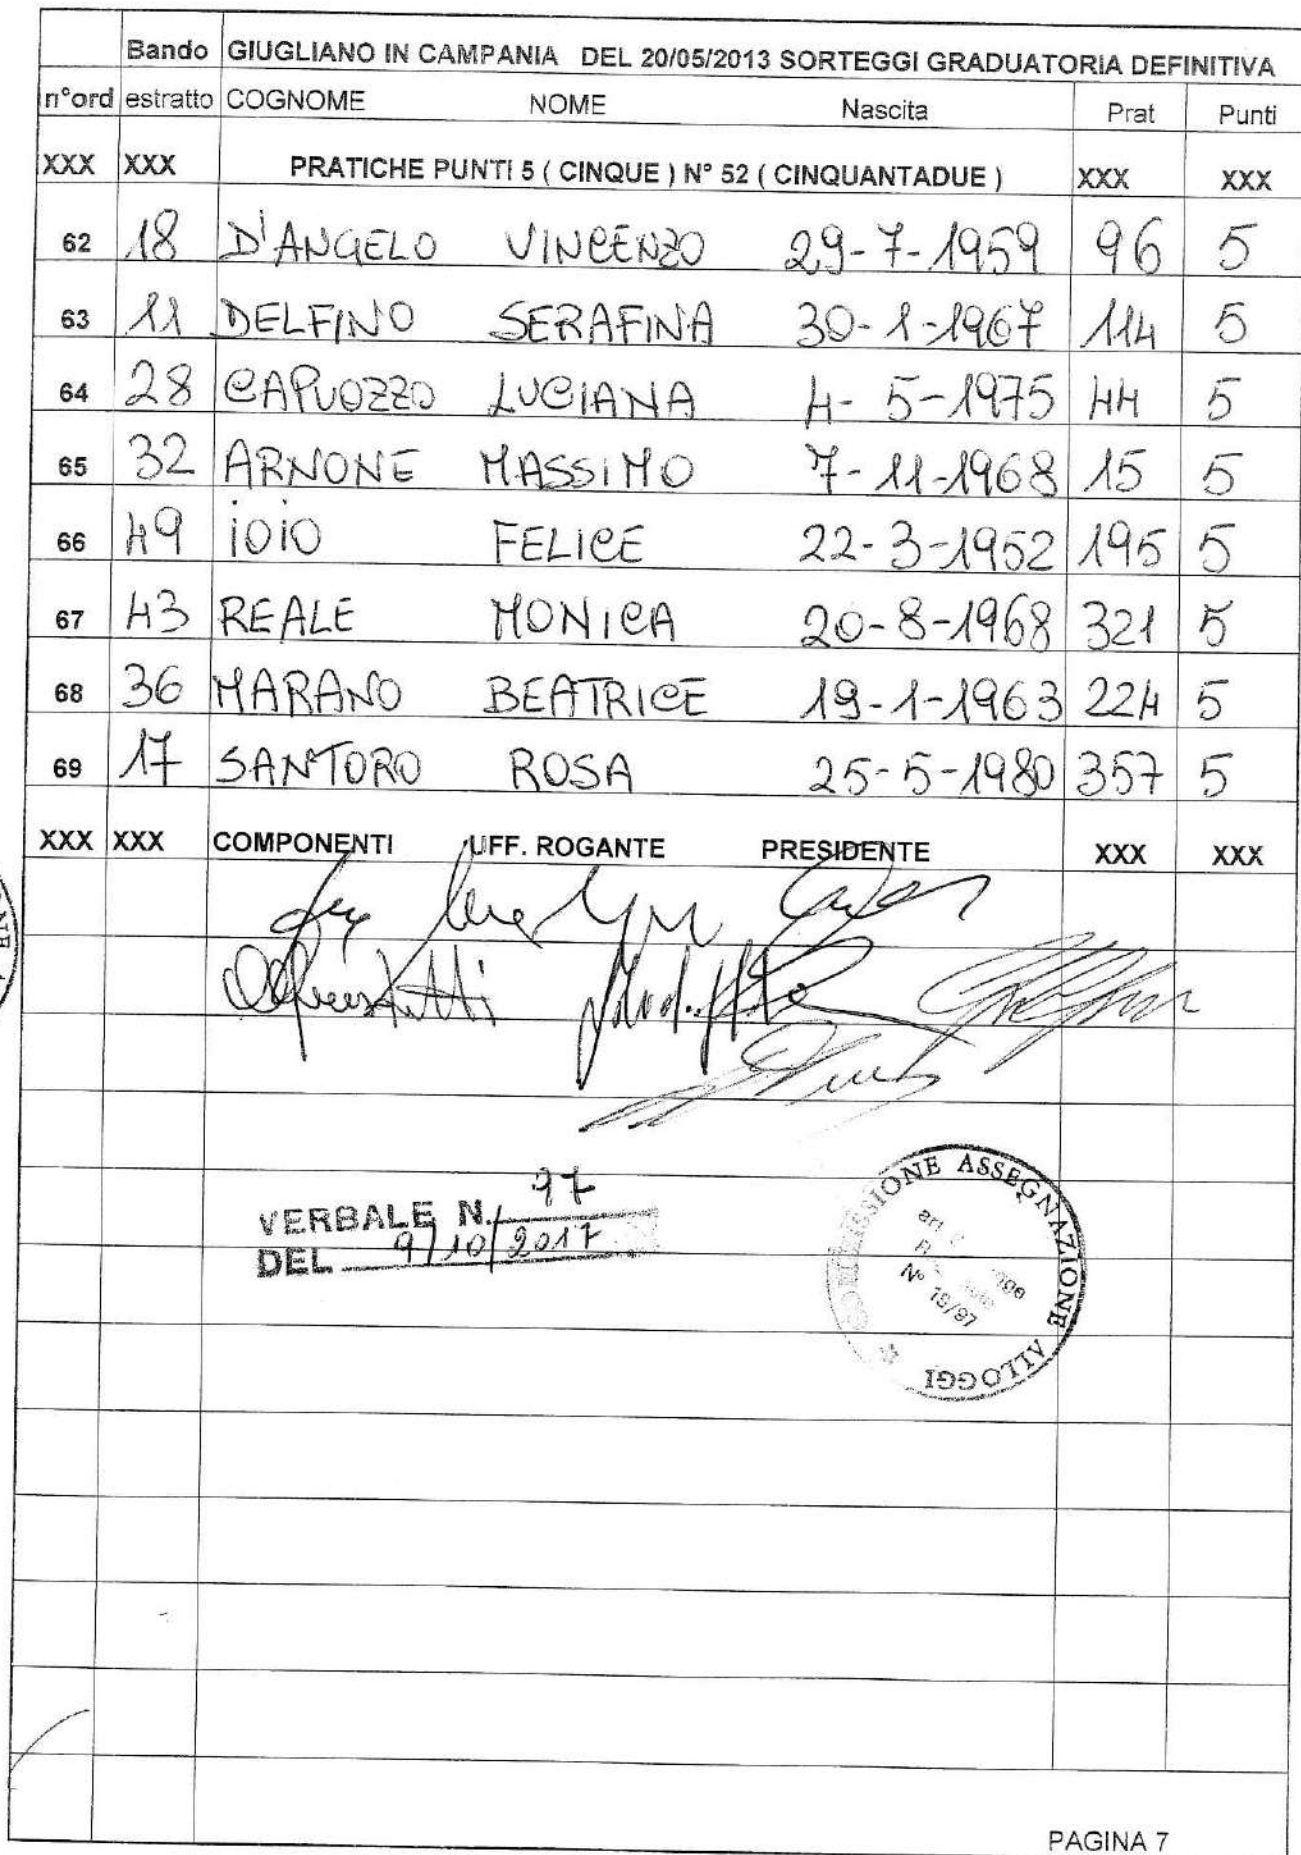 Bando GIUGLIANO IN CAMPANIA DEL 20/05/2013 SORTEGGI GRADUATORIA DEFINITIVA
n°ord estratto COGNOME NOME Nascita Prat Punti
XXX XXX PRATICHE PUNTI 5 ( CINQUE ) N° 52 ( CINQUANTADUE ) XXX XXX
62 18 D'ANGELO VINCENZO 29-7-1959 96 5
63 11 DELFINO SERAFINA 30-1-1967 114 5
64 28 CAPUOZZO LUCIANA 4-5-1975 44 5
65 32 ARNONE MASSIMO 7-11-1968 15 5
66 49 iOiO FELICE 22-3-1952 195 5
67 43 REALE MONiCA 20-8-1968 321 5
68 36 MARANO BEATRICE 19-1-1963 224 5
69 17 SANTORO ROSA 25-5-1980 357 5
XXX XXX COMPONENTI UFF. ROGANTE PRESIDENTE XXX XXX
VERBALE N. 97
DEL 9/10/2017
COMMISSIONE ASSEGNAZIONE ALLOGGI
N° 19/97
PAGINA 7